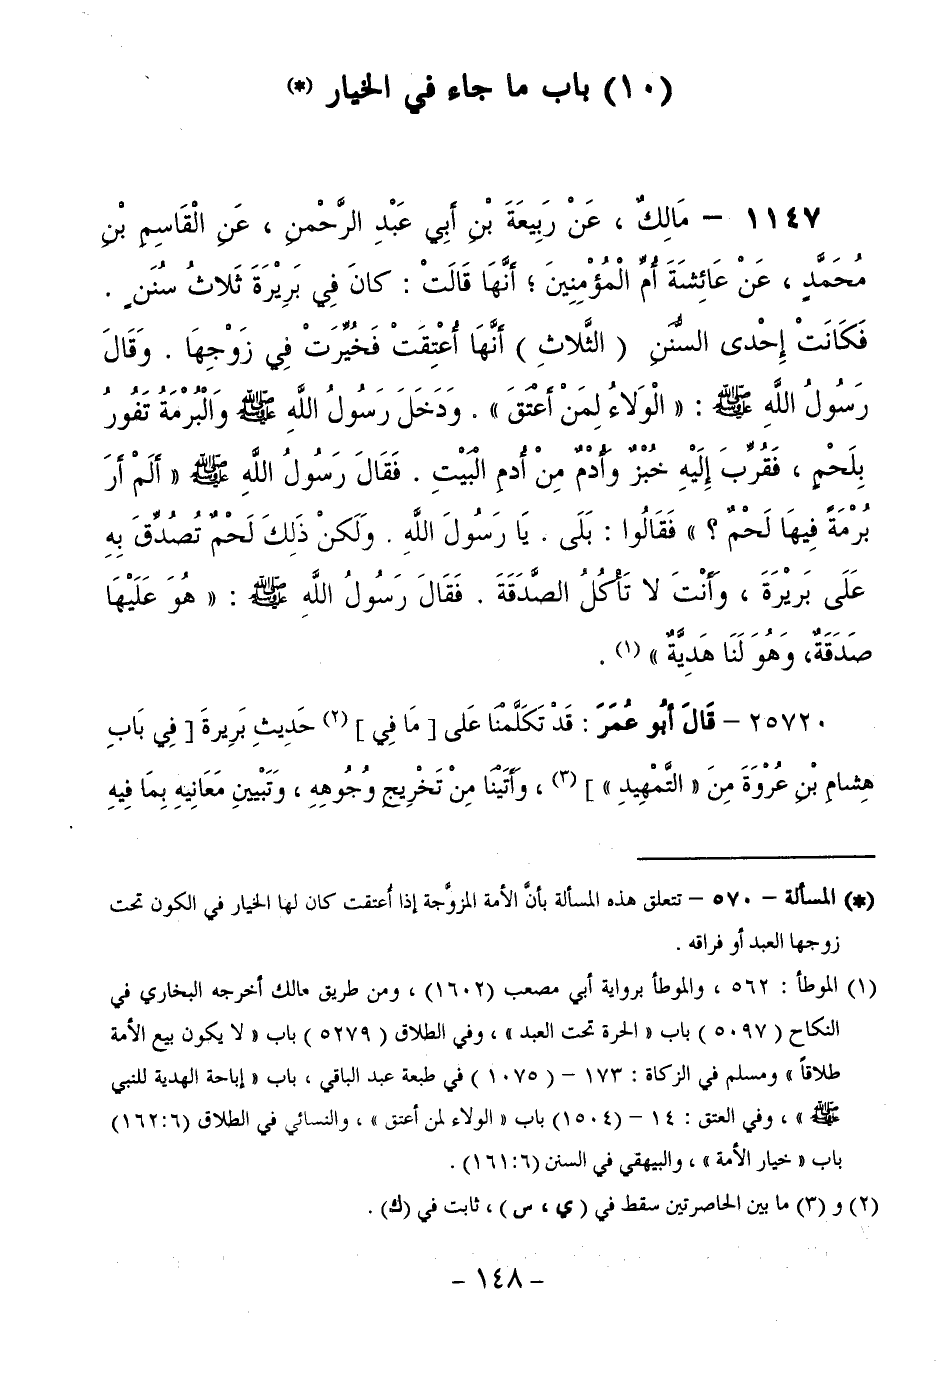 (١٠) باب ما جاء في الخيار (*)
١١٤٧ – مَالِكٌ ، عَنْ رَبِيعَةَ بْنِ أَبِي عَبْدِ الرَّحْمنِ ، عَنِ الْقَاسِمِ بْنِ
مُحَمَّدٍ ، عَنْ عَائِشَةَ أُمِّ الْمُؤْمِنِينَ ؛ أَنَّهَا قَالَتْ : كَانَ فِي بَرِيْرَةَ ثَلاثُ سُنَنٍ .
فَكَانَتْ إِحْدى السُّنَنِ ( الثَّلاثِ ) أَنَّهَا أُعْتِقَتْ فَخُيِّرَتْ فِي زَوْجِهَا . وَقَالَ
رَسُولُ اللَّهِ ﷺ : « الْوَلَاءُ لِمَنْ أَعْتَقَ » . وَدَخَلَ رَسُولُ اللَّهِ ﷺ وَالْبُرْمَةُ تَفُورُ
بِلَحْمٍ ، فَقُرِّبَ إِلَيْهِ خُبْزٌ وَأُدْمٌ مِنْ أُدمِ الْبَيْتِ . فَقَالَ رَسُولُ اللَّهِ ﷺ « أَلَمْ أَرَ
بُرْمَةً فِيهَا لَحْمٌ ؟ » فَقَالُوا : بَلَى . يَا رَسُولَ اللَّهِ . وَلَكنْ ذَلِكَ لَحْمٌ تُصُدِّقَ بِهِ
عَلَى بَرِيْرَةَ ، وَأَنْتَ لا تَأْكُلُ الصَّدَقَةَ . فَقَالَ رَسُولُ اللَّهِ ﷺ : « هُوَ عَلَيْهَا
صَدَقَةٌ، وَهُوَ لَنَا هَدِيَّةٌ » (١) .
٢٥٧٢٠ – قَالَ أَبُو عُمَرَ : قَدْ تَكَلَّمْنَا عَلى [ مَا فِي ] (٢) حَدِيثِ بَرِيرةَ [ فِي بَابِ
هِشامِ بْنِ عُرْوَةَ مِنَ « التَّمْهِيدِ » ] (٣) ، وَأَتَيْنَا مِنْ تَخْرِيجِ وُجُوهِهِ ، وَتَبْيِينِ مَعَانِيهِ بِمَا فِيهِ
(*) المسألة – ٥٧٠ – تتعلق هذه المسألة بأنَّ الأمة المزوَّجة إذا أُعتقت كان لها الخيار في الكون تحت
زوجها العبد أو فراقه .
(١) الموطأ : ٥٦٢ ، والموطأ برواية أبي مصعب (١٦٠٢) ، ومن طريق مالك أخرجه البخاري في
النكاح ( ٥٠٩٧ ) باب « الحرة تحت العبد » ، وفي الطلاق ( ٥٢٧٩ ) باب « لا يكون بيع الأمة
طلاقاً » ومسلم في الزكاة : ١٧٣ – ( ١٠٧٥ ) في طبعة عبد الباقي ، باب « إباحة الهدية للنبي
ﷺ » ، وفي العتق : ١٤ – (١٥٠٤) باب « الولاء لمن أعتق » ، والنسائي في الطلاق (١٦٢:٦)
باب « خيار الأمة » ، والبيهقي في السنن (١٦١:٦) .
(٢) و (٣) ما بين الحاصرتين سقط في ( ي ، س ) ، ثابت في (ك) .
– ١٤٨ –